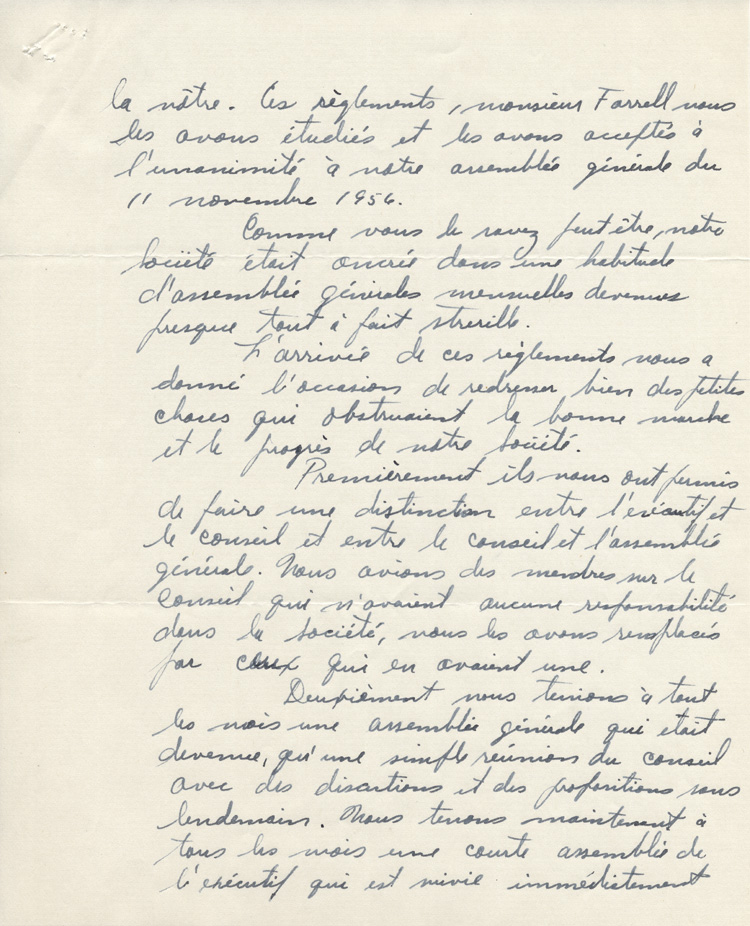 la nôtre. Ces règlements, monsieur Farrell nous
les avons étudiés et les avons acceptés à
l'unanimité à notre assemblée générale du
11 novembre 1956.
Comme vous le savez peut être, notre
Société était ancrée dans une habitude
d'assemblée générales mensuelles devenues
presque tout à fait sterille.
L'arrivée de ces règlements nous a
donné l'occasion de redresser bien des petites
choses qui obstruaient la bonne marche
et le progrès de notre Société.
Premièrement ils nous ont permis
de faire une distinction entre l'exécutif et
le conseil et entre le conseil et l'assemblée
générale. Nous avions des membres sur le
Conseil qui n'avaient aucune responsabilité
dans la Société, nous les avons remplacés
par ceux qui en avaient une.
Deuxièment nous tenions à tout
les mois une assemblée générale qui était
devenue, qu'une simple réunion du conseil
avec des discutions et des propositions sans
lendemain. Nous tenons maintenant à
tous les mois une courte assemblée de
l'exécutif qui est suivie immédiatement